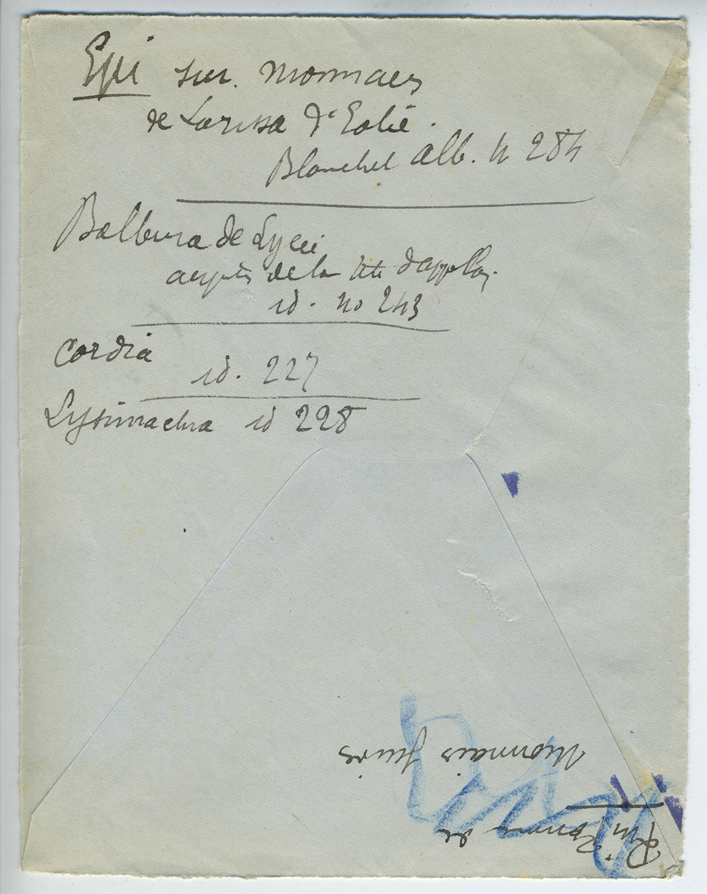 Epi sur monnaies
de Larissa d'Eolie.
Blanchet Alb. n 284
Balbura de Lycie
auprès de la tête d'appollon
id. no 243
Cardia
id. 227
Lysimachia id 228
de
Monnaies juives